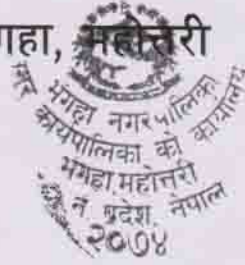 गहा, महोत्तरी
भंगाहा नगरपालिका
नगर कार्यपालिका को कार्यालय
भंगाहा महोत्तरी
प्रदेश, नेपाल
२०७४